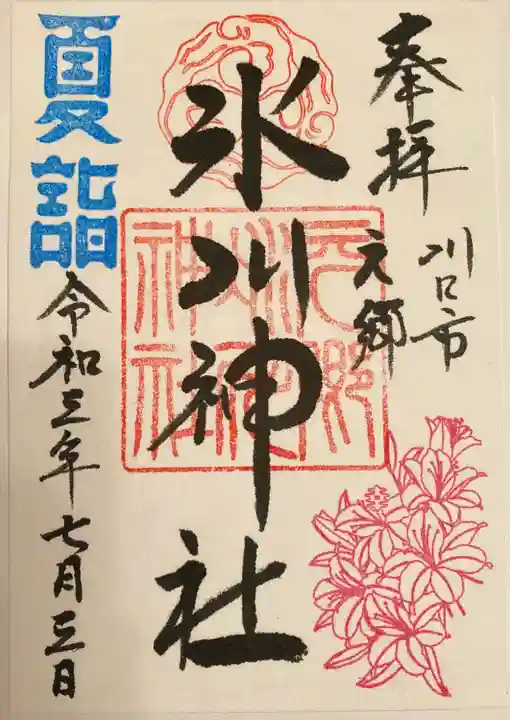 奉拝
川口市
元郷
氷川神社
元郷氷川神社
夏詣
令和三年七月三日